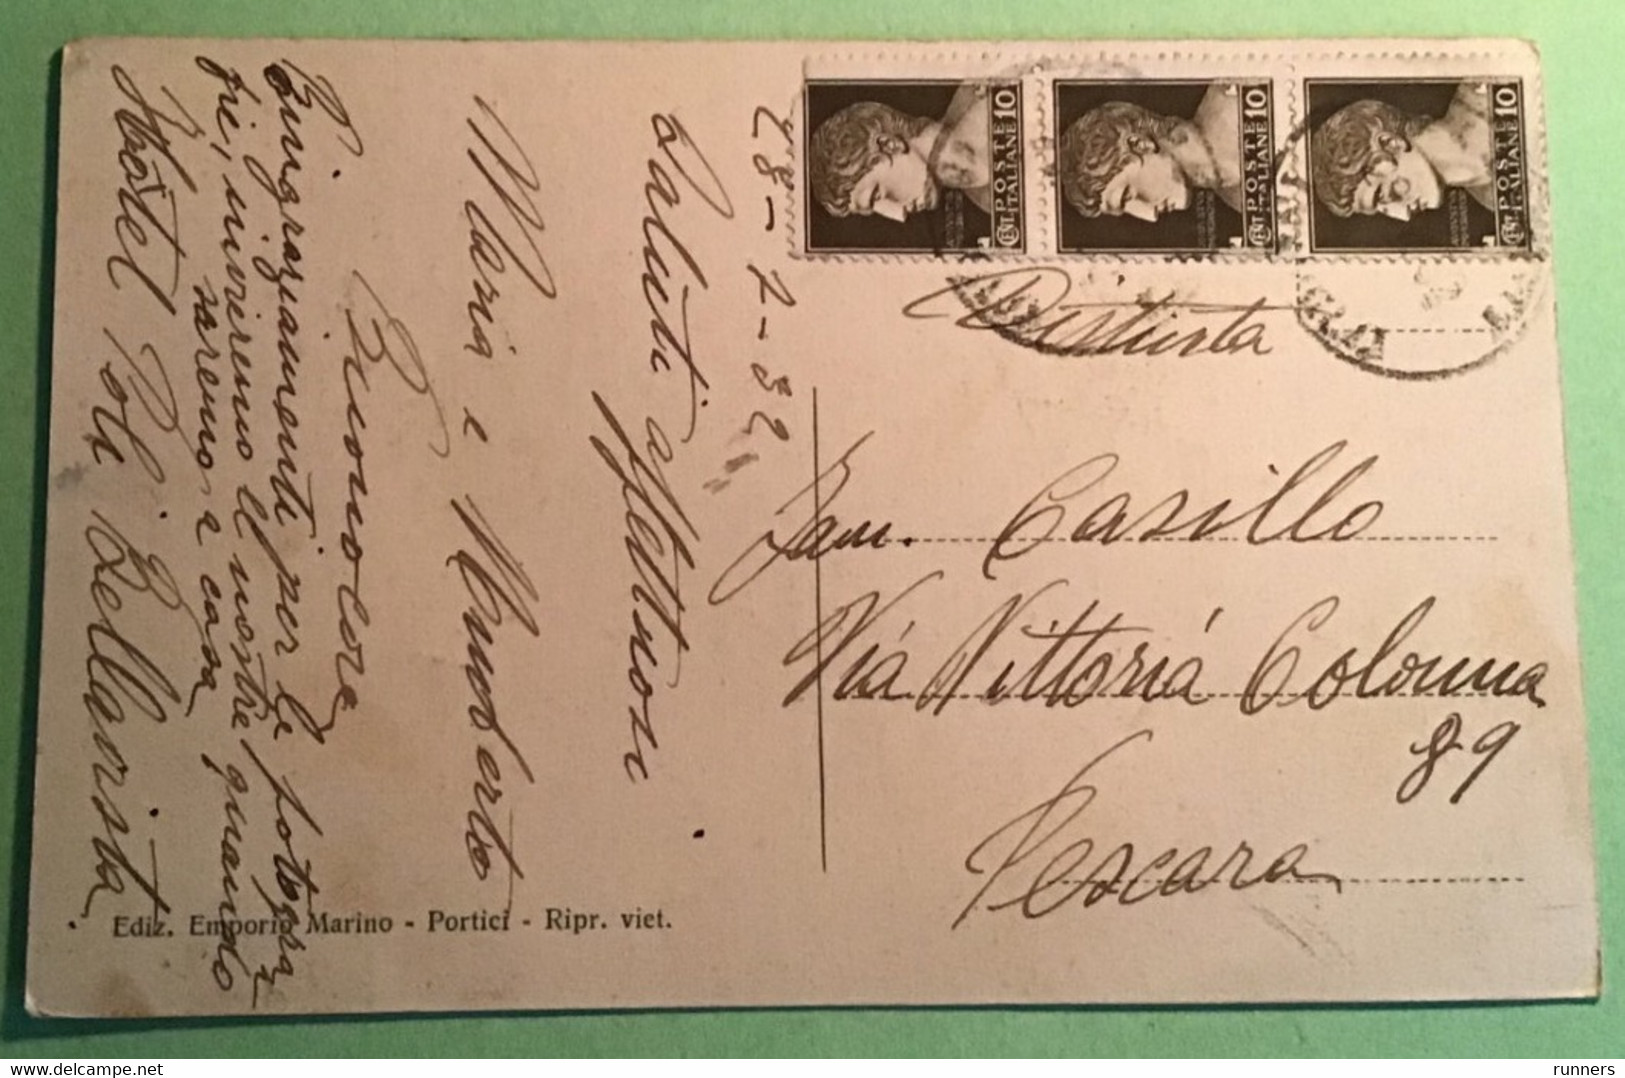 28-7-32
Saluti affettuosi
Maria e Umberto
Ringraziamenti per le fotogra
fie, invieremo le nostre quando
saremo a casa
Hôtel Poli Bellavista
POSTE
ITALIANE
CENT 10
POSTE
ITALIANE
CENT 10
POSTE
ITALIANE
CENT 10
Distinta
Fam. Casillo
Via Vittoria Colonna
89
Pescara
Ediz. Emporio Marino - Portici - Ripr. viet.
delcampe.net
runners